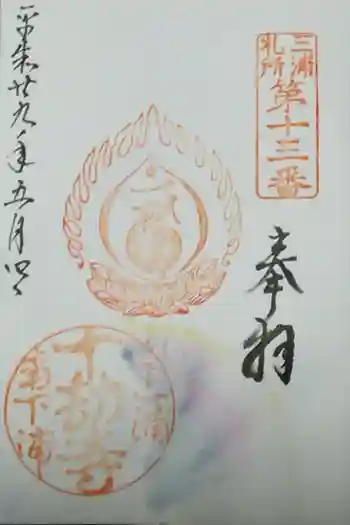 三浦
札所
第十三番
奉拝
平成廿九年五月四日
三浦
十劫寺
南下浦